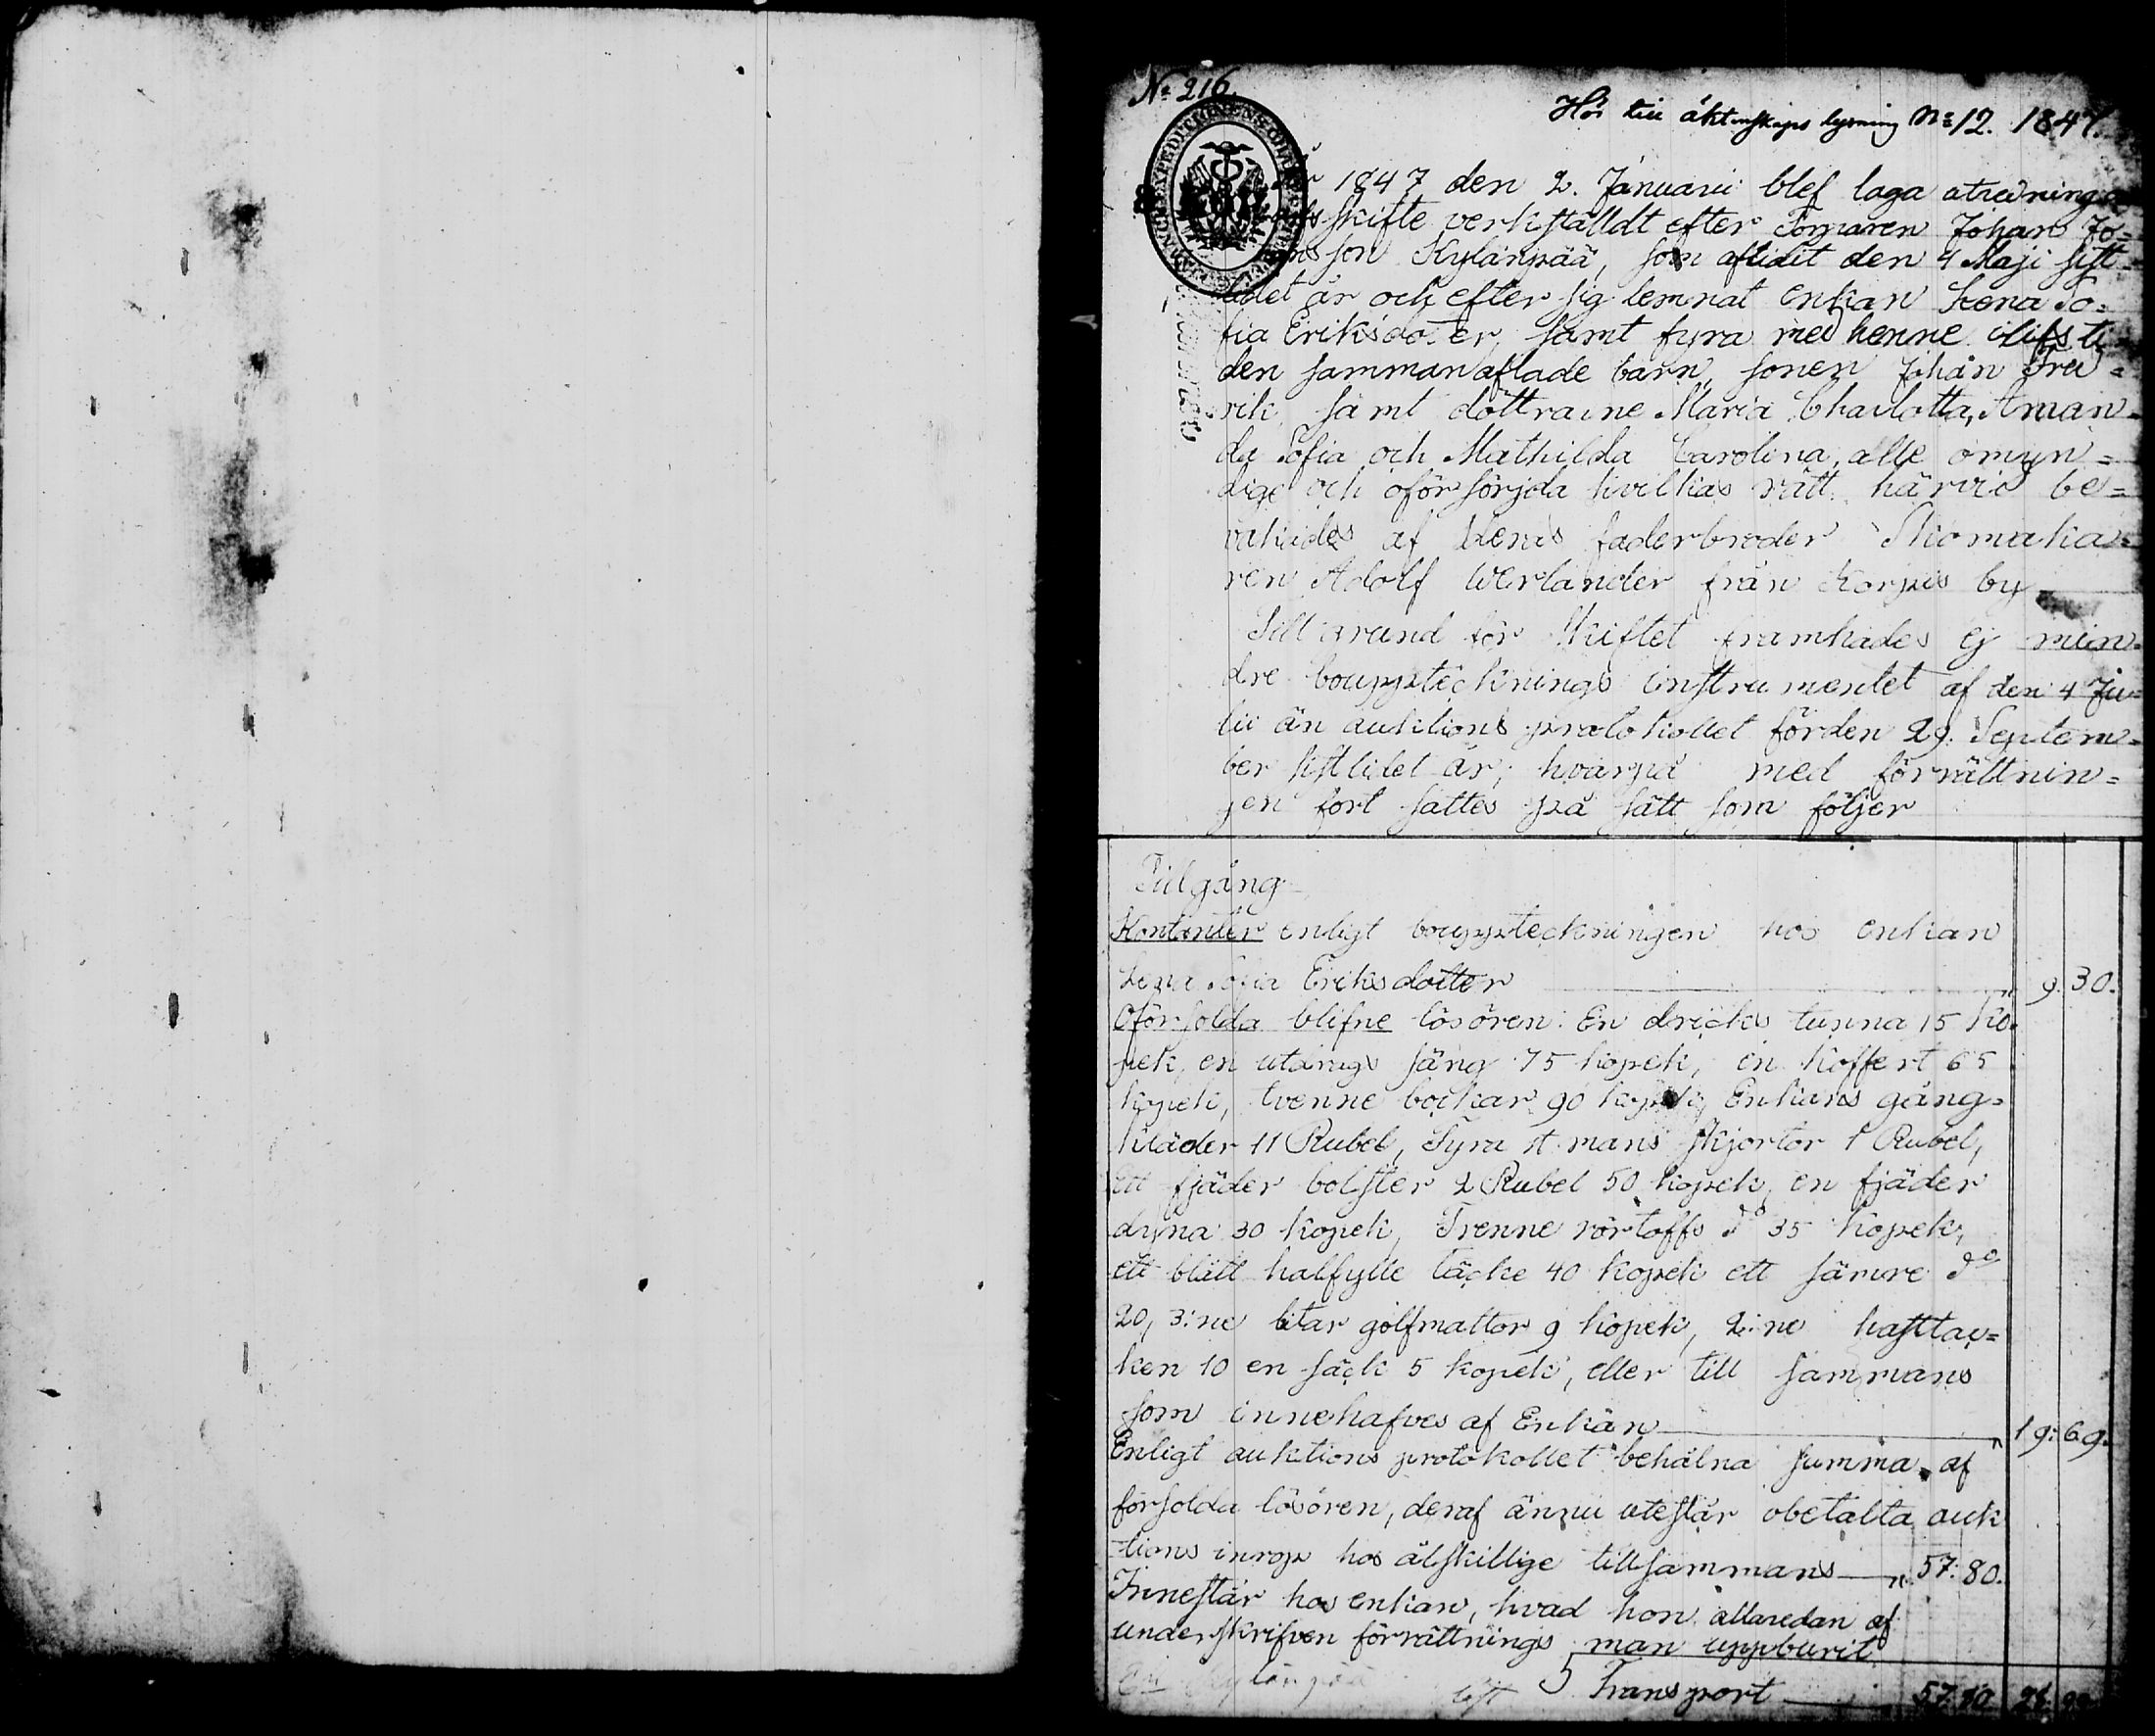 No 216.
Hör till äktenskaps lysning No 12. 1847.
År 1847 den 2. Januarii blef laga utredning
skifte verkställdt efter Torparen Johan Jo=
hansson Kylänpää, som aflidit den 4 Maji sist=
lidet år och efter sig lemnat enkan Lena So=
fia Eriksdotter, samt fyra med henne i lifsti
den sammanaflade barn, sonen Johan Fred=
rik, samt döttrarne Maria Charlotta, Aman=
da Sofia och Mathilda Carolina, alle omyn=
dige och oförsörjda hvilkas rätt härvid be=
vakades af deras faderbroder Skomaka=
ren Adolf Werlander från Korpis by
Till grund för skiftet framhades ej min=
dre boupptecknings instrumentet af den 4 Ju=
lii än auktions protokollet för den 29. Septem=
ber sistlidet år, hvarpå med förrättnin=
gen fort sattes på sätt som följer
Tillgång
Kontanter enligt bouppteckningen hos enkan
Lena Sofia Eriksdotter " 9. 30.
Oförsolda blifne lösören: En dricks tunna 15 ko=
pek, en utdrags säng 75 kopek, en koffert 65
kopek, tvenne bockar 90 kopek, Enkans gång=
kläder 11 Rubel, Fyra st. mans skjortor 1 Rubel,
ett fjäder bolster 2 Rubel 50 kopek, en fjäder
dyna 30 kopek, Trenne rörtoffs do 35 kopek,
ett blått halfylle täcke 40 kopek ett sämre do
20, 3:ne bitar golfmattor 9 kopek, 2:ne hästtäc=
ken 10 en säck 5 kopek, eller till sammans
som innehafves af Enkan " 19: 69.
Enligt auktions protokollet behålna summa af
försolda lösören, deraf ännu utestår obetalta auk
tions inrop hos åtskillige tillsammans " 57: 80.
Innestår hos enkan, hvad hon allaredan af
underskrifven förrättnings man uppburit
Transport 57. 80 28. 99